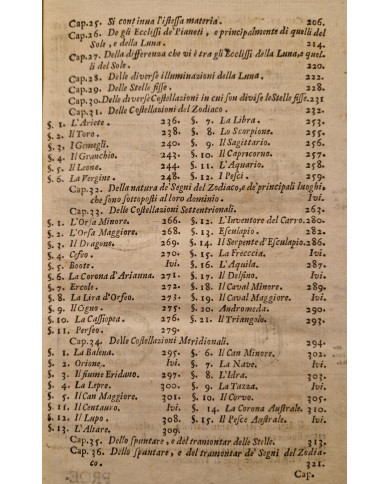 Cap.25. Si continua l'istessa materia. 206.
Cap.26. De gli Ecclissi de' Pianeti, e principalmente di quelli del
Sole, e della Luna. 214.
Cap.27. Della differenza che vi è tra gli Ecclissi della Luna, e quel-
li del Sole. 220.
Cap.28. Delle diverse illuminazioni della Luna. 222.
Cap.29. Delle Stelle fisse. 228.
Cap.30. Delle diverse Costellazioni in cui son divise le Stelle fisse. 231
Cap.31. Delle Costellazioni del Zodiaco. 232.
§. 1. L'Ariete. 236. §. 7. La Libra. 253.
§. 2. Il Toro. 238. §. 8. Lo Scorpione. 255.
§. 3. I Gemegli. 240. §. 9. Il Sagittario. 256.
§. 4. Il Granchio. 243. §. 10. Il Capricorno. 257.
§. 5. Il Leone. 244. §. 11. L'Aquario. 258.
§. 6. La Vergine. 248. §. 12. I Pesci. 259.
Cap.32. Della natura de' Segni del Zodiaco, e de' principali luoghi,
che sono sottoposti al loro dominio. Ivi.
Cap.33. Delle Costellazioni Settentrionali. 263.
§. 1. L'Orsa Minore. 266. §. 12. L'Inventore del Carro. 280.
§. 2. L'Orsa Maggiore. 268. §. 13. Esculapio. 282.
§. 3. Il Dragone. 269. §. 14. Il Serpente d'Esculapio. 286.
§. 4. Cefeo. 270. §. 15. La Freccia. Ivi.
§. 5. Boote. Ivi. §. 16. L'Aquila. 287.
§. 6. La Corona d'Arianna. 271. §. 17. Il Delfino. Ivi.
§. 7. Ercole. 272. §. 18. Il Caval Minore. Ivi.
§. 8. La Lira d'Orfeo. 273. §. 19. Il Caval Maggiore. Ivi.
§. 9. Il Cigno. 275. §. 20. Andromeda. 290.
§. 10. La Cassiopea. 276. §. 21. Il Triangolo. 293.
§. 11. Perseo. 279.
Cap.34. Delle Costellazioni Meridionali. 294.
§. 1. La Balena. 295. §. 6. Il Can Minore. 302.
§. 2. Orione. Ivi. §. 7. La Nave. Ivi.
§. 3. Il fiume Eridano. 297. §. 8. L'Idra. 303.
§. 4. La Lepre. 300. §. 9. La Tazza. Ivi.
§. 5. Il Can Maggiore. 301. §. 10. Il Corvo. 305.
§. 11. Il Centauro. Ivi. §. 14. La Corona Australe. 310.
§. 12. Il Lupo. 308. §. 15. Il Pesce Australe. Ivi.
§. 13. L'Altare. 309.
Cap.35. Dello spuntare, e del tramontar delle Stelle. 313.
Cap. 36. Dello spuntare, e del tramontar de' Segni del Zodia-
co. 321.
Cap.